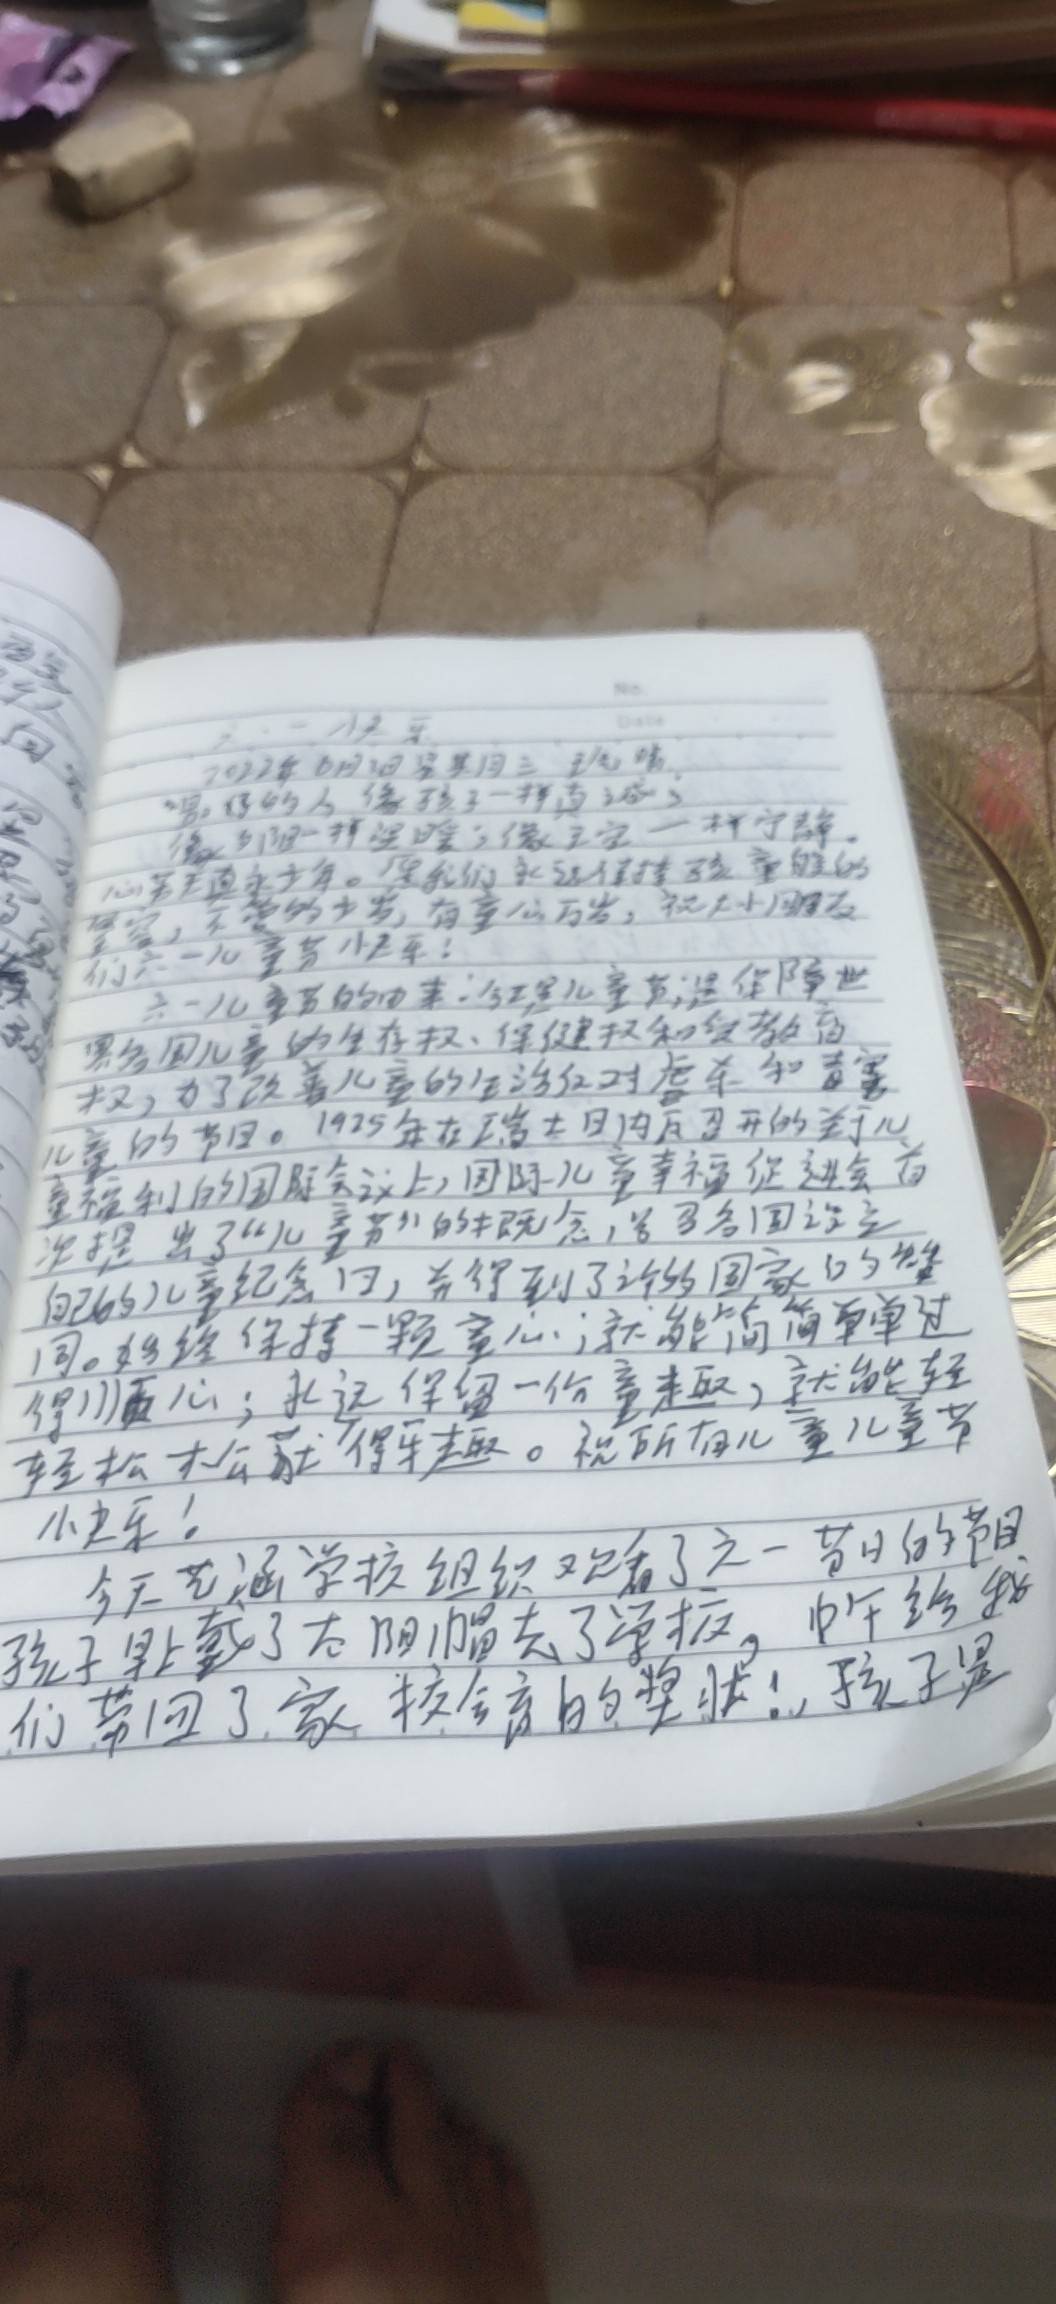 No.
Date
六·一快乐
2022年6月1日星期三 天气晴
最好的人像孩子一样真诚,
像夕阳一样温暖;像天空一样宁静。
心若天真永少年。愿我们永远保持孩童般的
笑容,不老的少女,有童心万岁,祝大小朋友
们六一儿童节快乐!
六一儿童节的由来:国际儿童节,是保障世
界各国儿童的生存权、保健权和受教育
权,为了改善儿童的生活反对虐杀和毒害
儿童的节日。1925年在瑞士日内瓦召开的关于儿
童福利的国际会议上,国际儿童幸福促进会首
次提出了“儿童节”的概念,号召各国设立
自己的儿童纪念日,并得到了许多国家的赞
同。始终保持一颗童心;就能简简单单过
得顺心;永远保留一份童趣,就能轻
轻松松获得乐趣。祝所有儿童儿童节
快乐!
今天艺涵学校组织观看了六一节日的节目
孩子早上戴了太阳帽去了学校,中午给我
们带回了家校会育的奖状!,孩子是